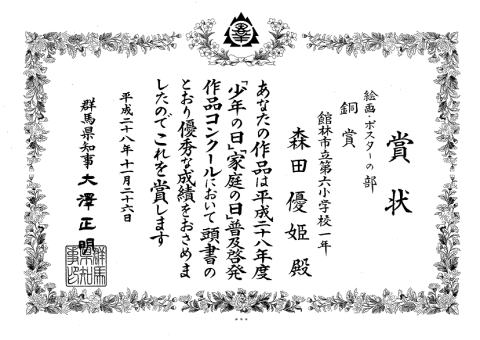 賞状
絵画・ポスターの部
銅賞
館林市立第六小学校一年
森田優姫殿
あなたの作品は平成二十八年度
「少年の日」「家庭の日」普及啓発
作品コンクールにおいて頭書の
とおり優秀な成績をおさめま
したのでこれを賞します
平成二十八年十一月二十六日
群馬県知事 大澤正明
群馬県知事之印